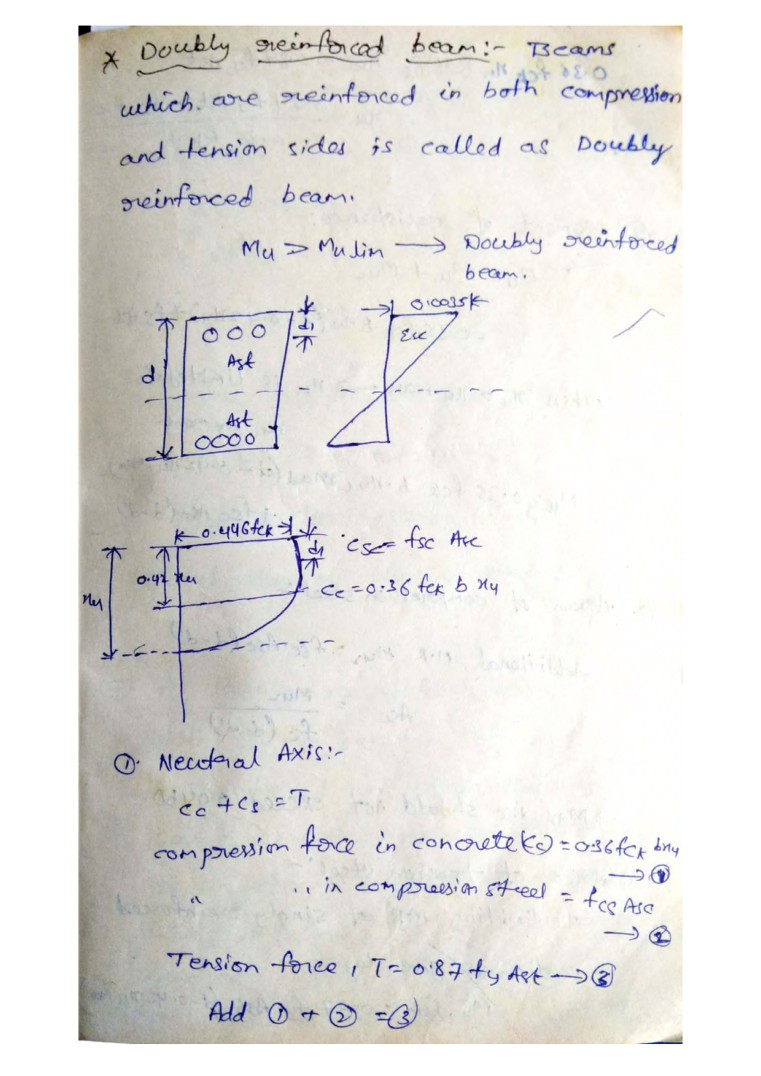 * Doubly reinforced beam:- Beams
which are reinforced in both compression
and tension sides is called as Doubly
reinforced beam.
Mu > Mu lim → Doubly reinforced
beam.
0.0035
d1
Ast
εcc
d
Ast
0.446fck
d1
Csc = fsc Asc
0.42 xu
xu
Cc = 0.36 fck b xu
① Neutral Axis:-
Cc + Cs = T
compression force in concrete (Cc) = 0.36 fck bxu
→ ①
" .. in compression steel = fcs Asc
→ ②
Tension force, T = 0.87 fy Ast → ③
Add ① + ② = ③